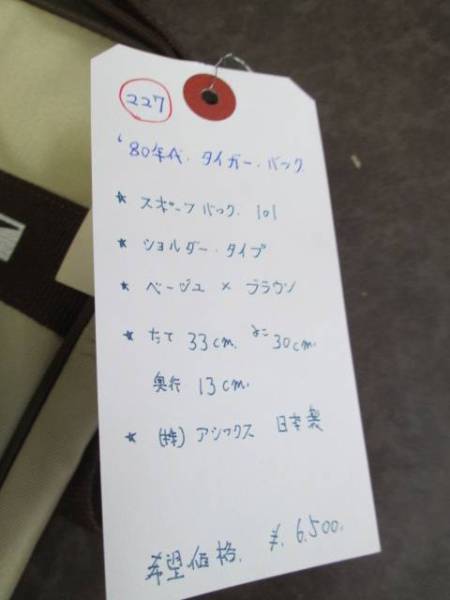 227
'80年代.タイガー.バック
★ スポーツバック.101
★ ショルダー.タイプ
★ ベージュ × ブラウン
★ たて 33cm. よこ 30cm.
奥行 13cm.
★ (株) アシックス 日本製
希望価格. ¥.6,500.